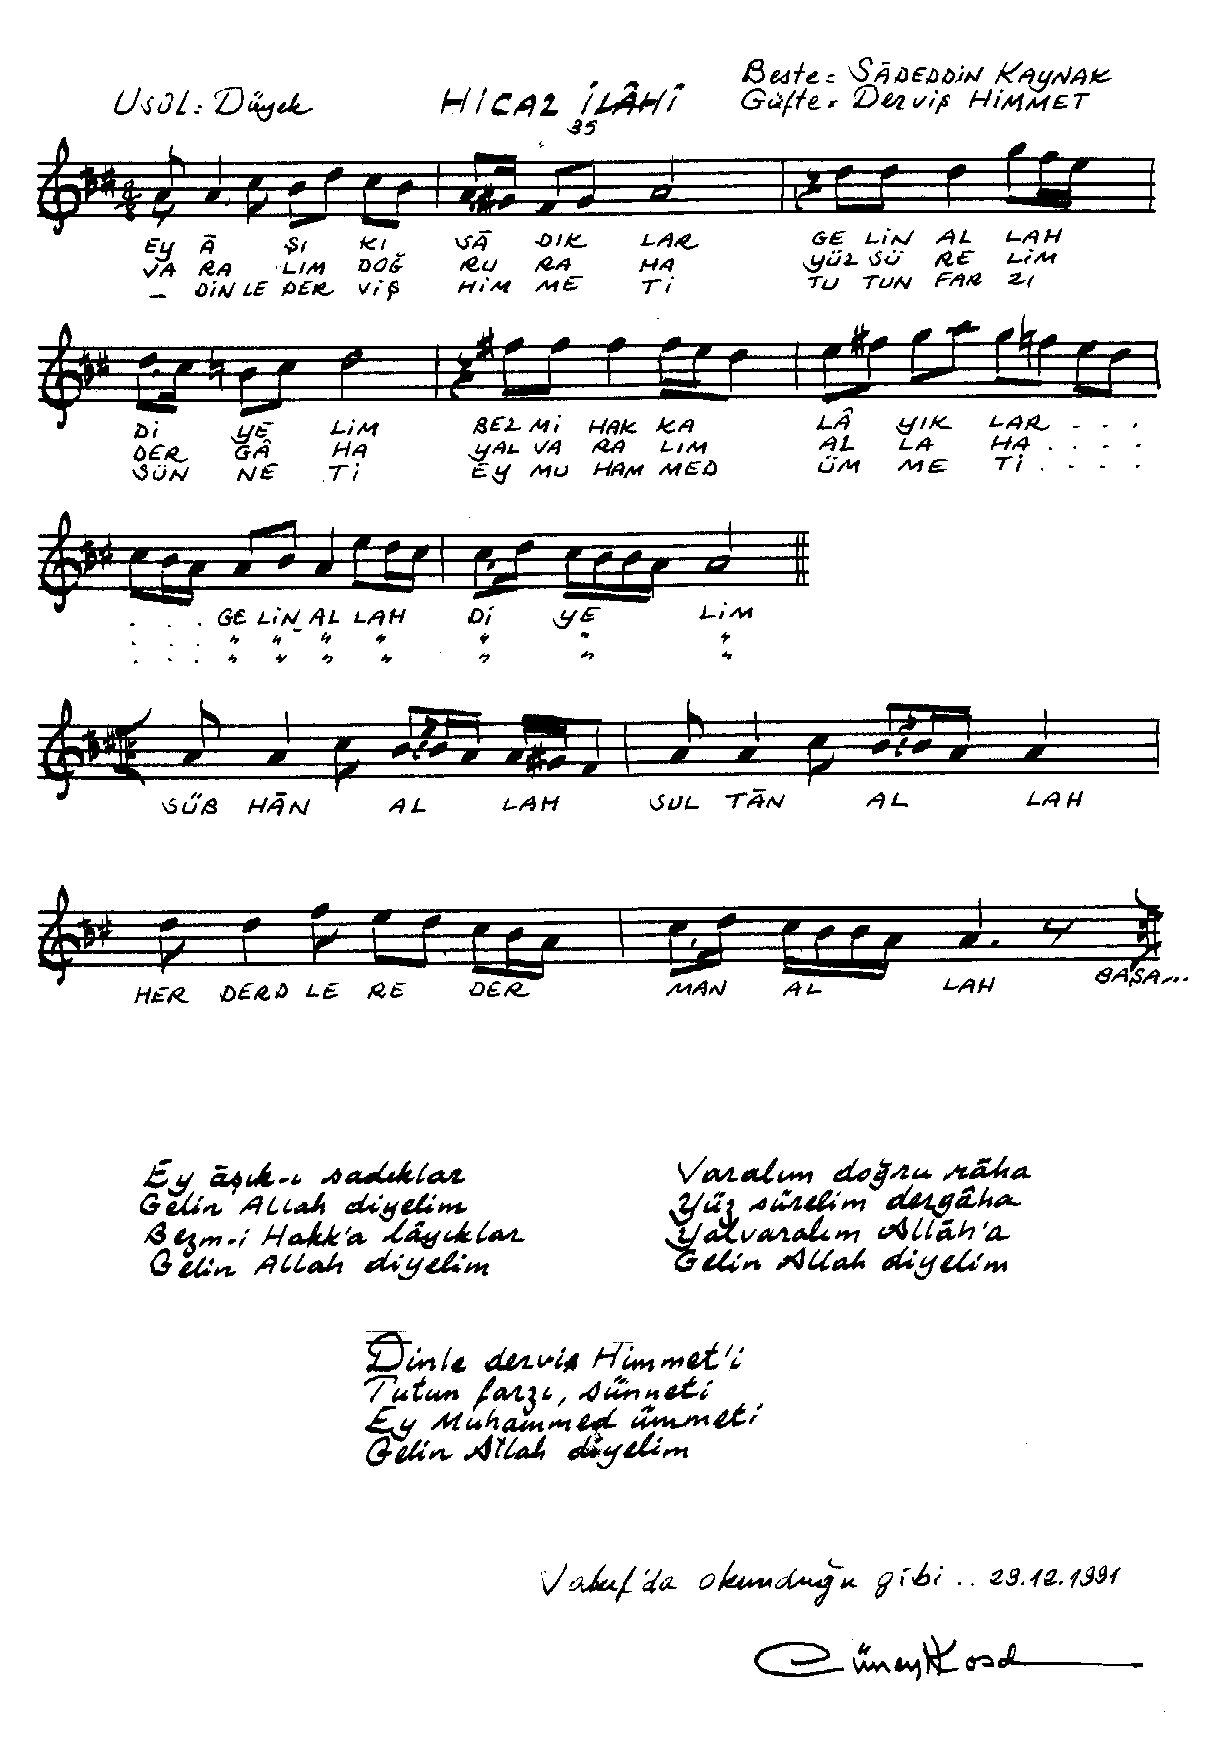 Usûl: Düyek
HİCAZ İLÂHÎ
35
Beste: SÂDEDDİN KAYNAK
Güfte: Derviş HİMMET
EY Â ŞI KI SÂ DIK LAR GE LİN AL LAH
VA RA LIM DOĞ RU RA HA YÜZ SÜ RE LİM
_ DİN LE DER VİŞ HİM ME Tİ TU TUN FAR ZI
Dİ YE LİM BEZ Mİ HAK KA LÂ YIK LAR - . .
DER GÂ HA YAL VA RA LIM AL LA HA . . . .
SÜN NE Tİ EY MU HAM MED ÜM ME Tİ . . . .
. . . GE LİN AL LAH Dİ YE LİM
. . . " " " " " " "
. . . " " " " " " "
SÜB HÂN AL LAH SUL TÂN AL LAH
HER DERD LE RE DER MAN AL LAH BAŞA...
Ey âşık-ı sadıklar
Gelin Allah diyelim
Bezm-i Hakk'a lâyıklar
Gelin Allah diyelim
Varalım doğru râha
Yüz sürelim dergâha
Yalvaralım Allâh'a
Gelin Allah diyelim
Dinle derviş Himmet'i
Tutun farzı, sünneti
Ey Muhammed ümmeti
Gelin Allah diyelim
Vakıf'da okunduğu gibi .. 29.12.1991